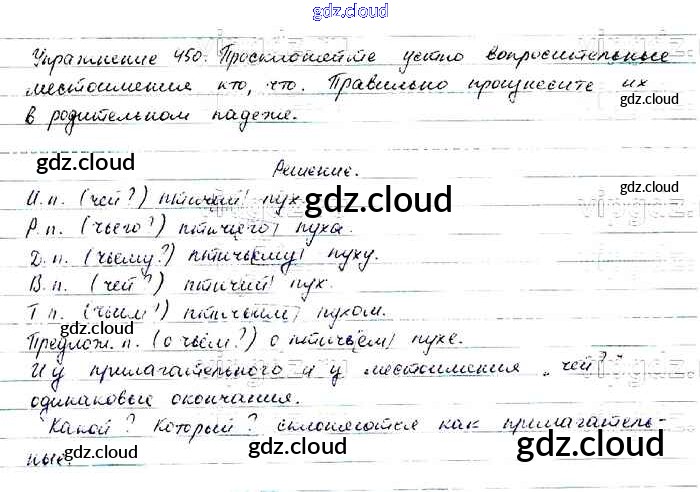 gdz.cloud
Упражнение 450. Просклоняйте устно вопросительные
местоимения кто, что. Правильно произнесите их
gdz.cloud
в родительном падеже.
gdz.cloud
Решение.
gdz.cloud
И.п. (чей?) птичий пух.
gdz.cloud
Р.п. (чьего?) птичьего пуха.
Д.п. (чьему?) птичьему пуху.
gdz.cloud
В.п. (чей?) птичий пух.
Т.п. (чьим?) птичьим пухом.
gdz.cloud
gdz.cloud
Предлож. п. (о чьём?) о птичьем пухе.
И у прилагательного и у местоимения „чей?"
одинаковые окончания.
Какой? Который? склоняются как прилагатель-
ные.
gdz.cloud
gdz.cloud
gdz.cloud